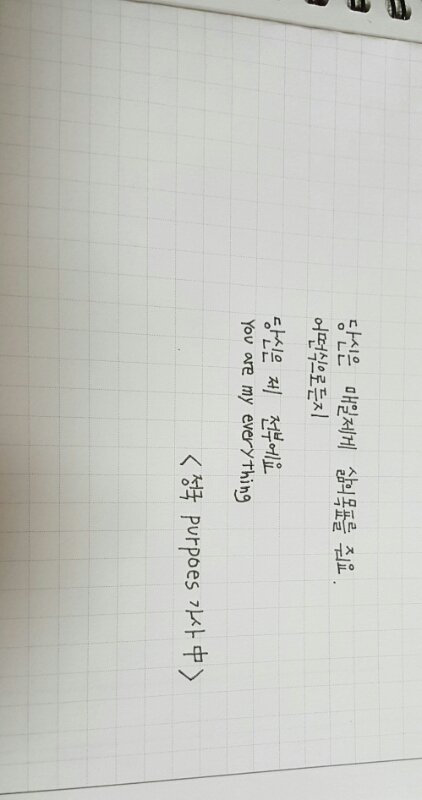 당신은 매일제게 삶의목표를 줘요.
어떤식으로든지
당신은 제 전부에요
You are my everything
< 정국 purpoes 가사 中 >